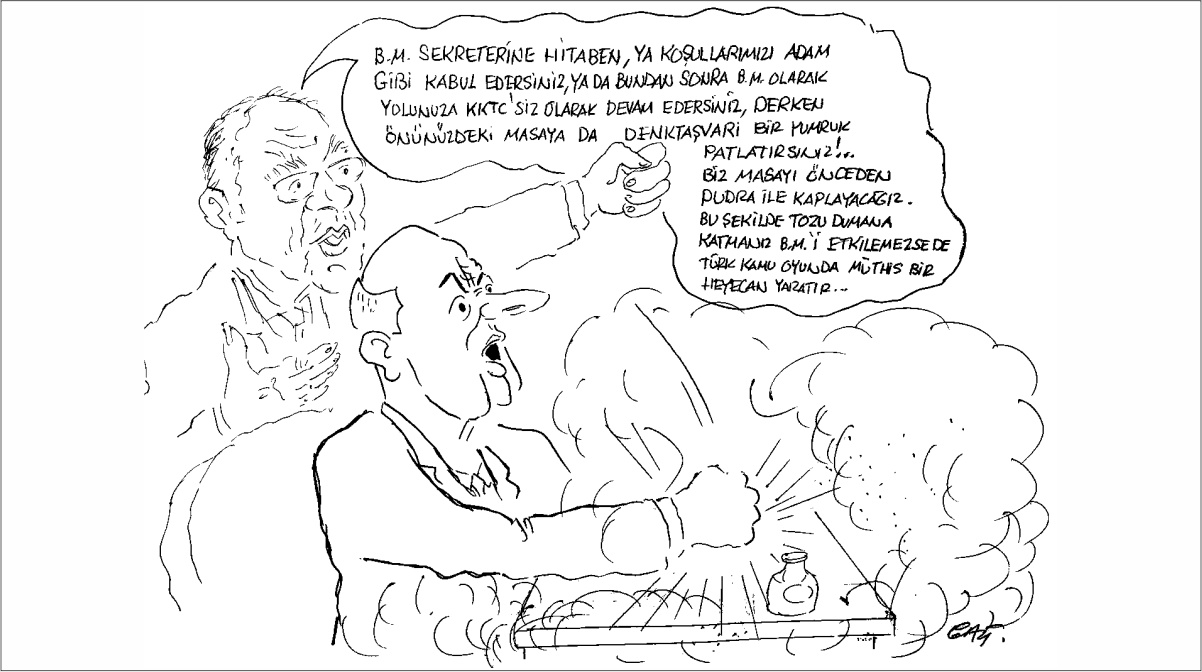 B.M. SEKRETERİNE HİTABEN, YA KOŞULLARIMIZI ADAM
GİBİ KABUL EDERSİNİZ, YA DA BUNDAN SONRA B.M. OLARAK
YOLUNUZA KKTC'SİZ OLARAK DEVAM EDERSİNİZ, DERKEN
ÖNÜNÜZDEKİ MASAYA DA DENKTAŞVARİ BİR YUMRUK
PATLATIRSINIZ!..
BİZ MASAYI ÖNCEDEN
PUDRA İLE KAPLAYACAĞIZ.
BU ŞEKİLDE TOZU DUMANA
KATMANIZ B.M.'İ ETKİLEMEZSE DE
TÜRK KAMU OYUNDA MÜTHİS BİR
HEYECAN YARATIR...